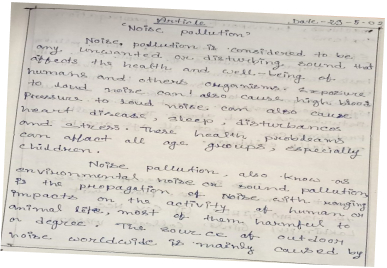 Article Date - 23-8-02
"Noise pollution"
Noise pollution is considered to be
any unwanted or disturbing sound that
affects the health and well-being of
humans and others organisms. Exposure
to loud noise can also cause high blood
pressure to loud noise can also cause
heart disease, sleep, disturbances
and stress. These health probleams
can affact all age groups, especially
childdren.
Noise pallution, also know as
environmental noise or sound pallution
is the propagation of noise with ranging
impacts on the activity of human or
animal life, most of them harmful to
a degree. The source of outdoor
noise worldwide is mainly caused by